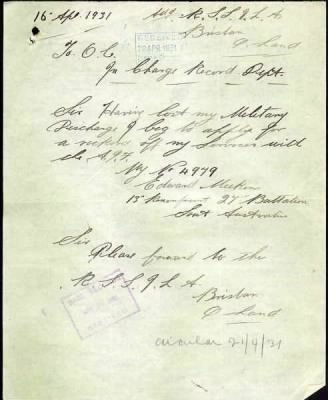 16 Apl. 1931
Add R. S. S. I. L. A
Brisban
Q Land
RECEIVED
20 APR 1931
To O. C.
In Charge Record Dept.
Sir Having lost my Military
Discharge I beg to apply for
a record off my services with
the A.I.F.
My No 4979
Edward
15 Reinforment 27 Battalion
South Australia
Sir
Please forward to the
R. S. S. I. L. A.
Brisban
Q Land
circular 21/4/31